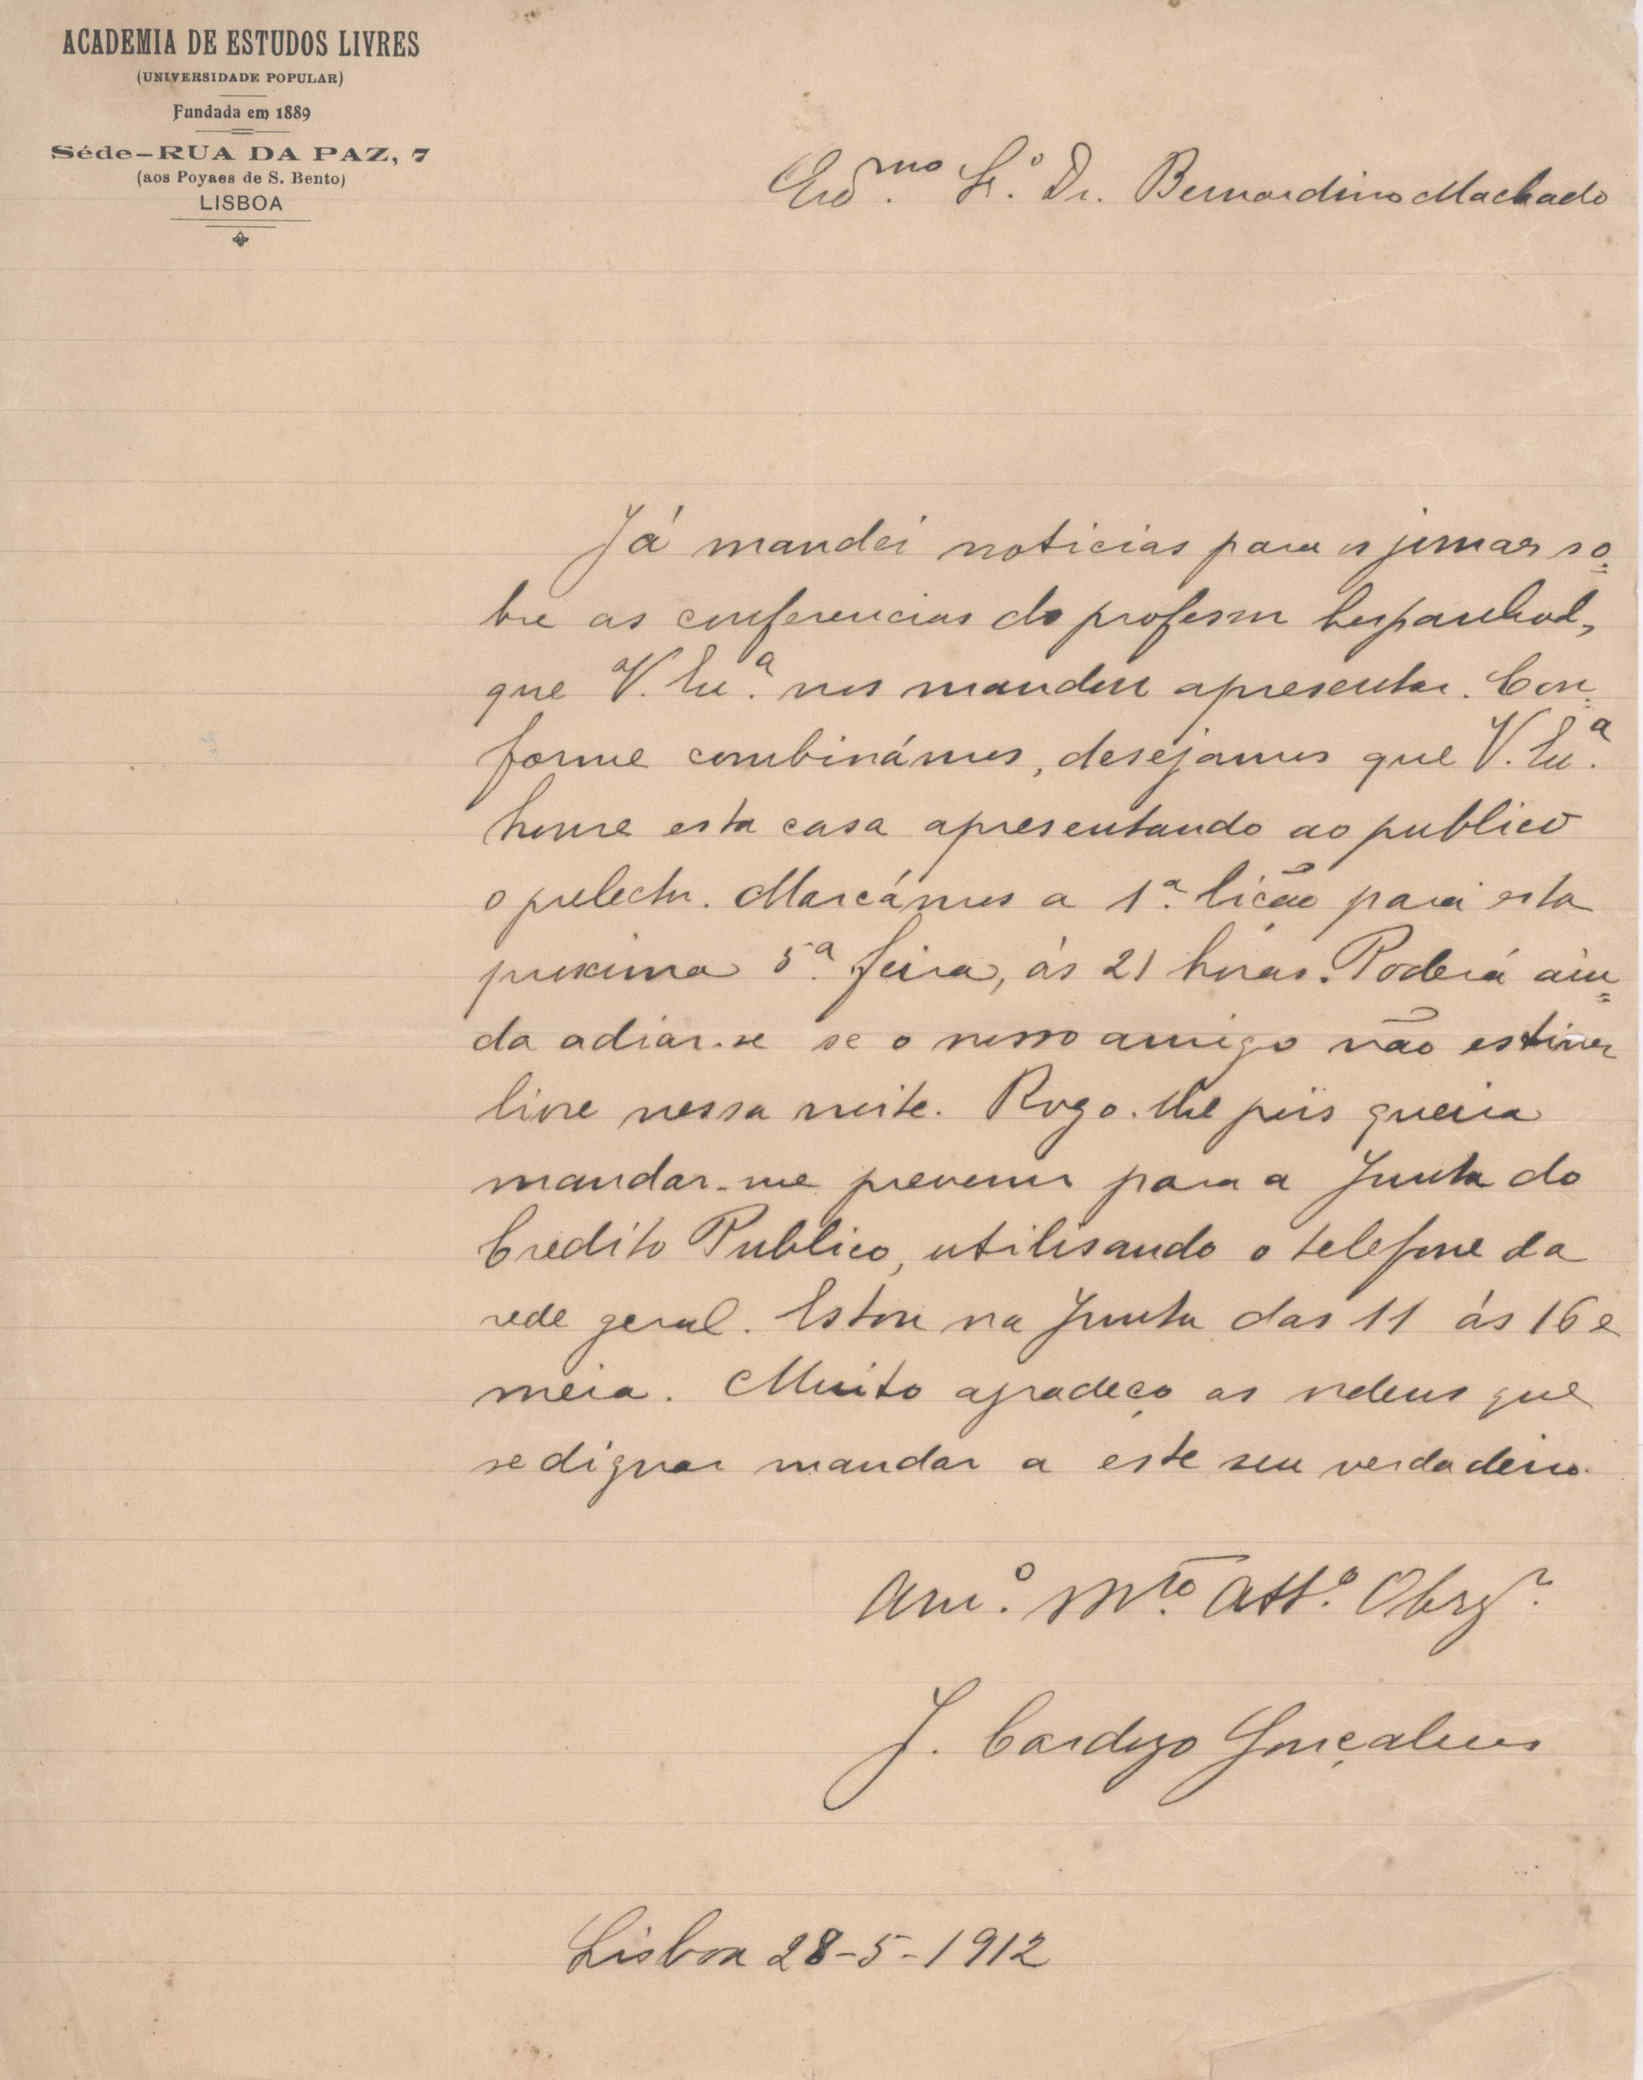 ACADEMIA DE ESTUDOS LIVRES
(UNIVERSIDADE POPULAR)
Fundada em 1889
Séde-RUA DA PAZ, 7
(aos Poyaes de S. Bento)
LISBOA
Exmo. Sr. Dr. Bernardino Machado
Já mandei noticias para os jornaes so=
bre as conferencias do professor hespanhol,
que V. Exa. nos mandou apresentar. Con=
forme combinámos, desejamos que V. Exa.
honre esta casa apresentando ao publico
o prelector. Marcámos a 1ª. lição para esta
proxima 5ª. feira, ás 21 horas. Poderá ain=
da adiar-se se o nosso amigo não estiver
livre nessa noite. Rogo-lhe pois queira
mandar-me prevenir para a Junta do
Credito Publico, utilisando o telefone da
rede geral. Estou na Junta das 11 ás 16 e
meia. Muito agradeço as ordens que
se dignar mandar a este seu verdadeiro
Amº. Mto. Attº. Obrgº.
J. Cardozo Gonçalves
Lisboa 28-5-1912